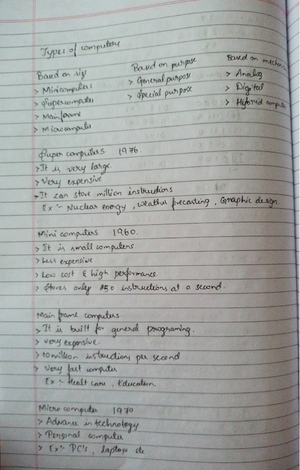 Types of computers
Based on size Based on purpose Based on mechan
> Minicomputers > General purpose > Analog
> Supercomputer > Special purpose > Digital
> Mainframe > Hybrid compute
> Microcomputer
Super computers 1976.
> It is very large
> Very expensive
> It can store million instructions
Ex :- Nuclear energy, weather forecasting, Graphic design
Mini computers 1960.
> It is small computers
> Less expensive
> Low cost & high performance
> Stores only 150 instructions at a second.
Main frame computers
> It is built for general programing.
> very expensive.
> 10 million instructions per second
> Very fast computer
Ex :- Healt care, Education.
Micro computer 1970
> Advance in technology
> Personal computer
> Ex :- PC's, laptops etc